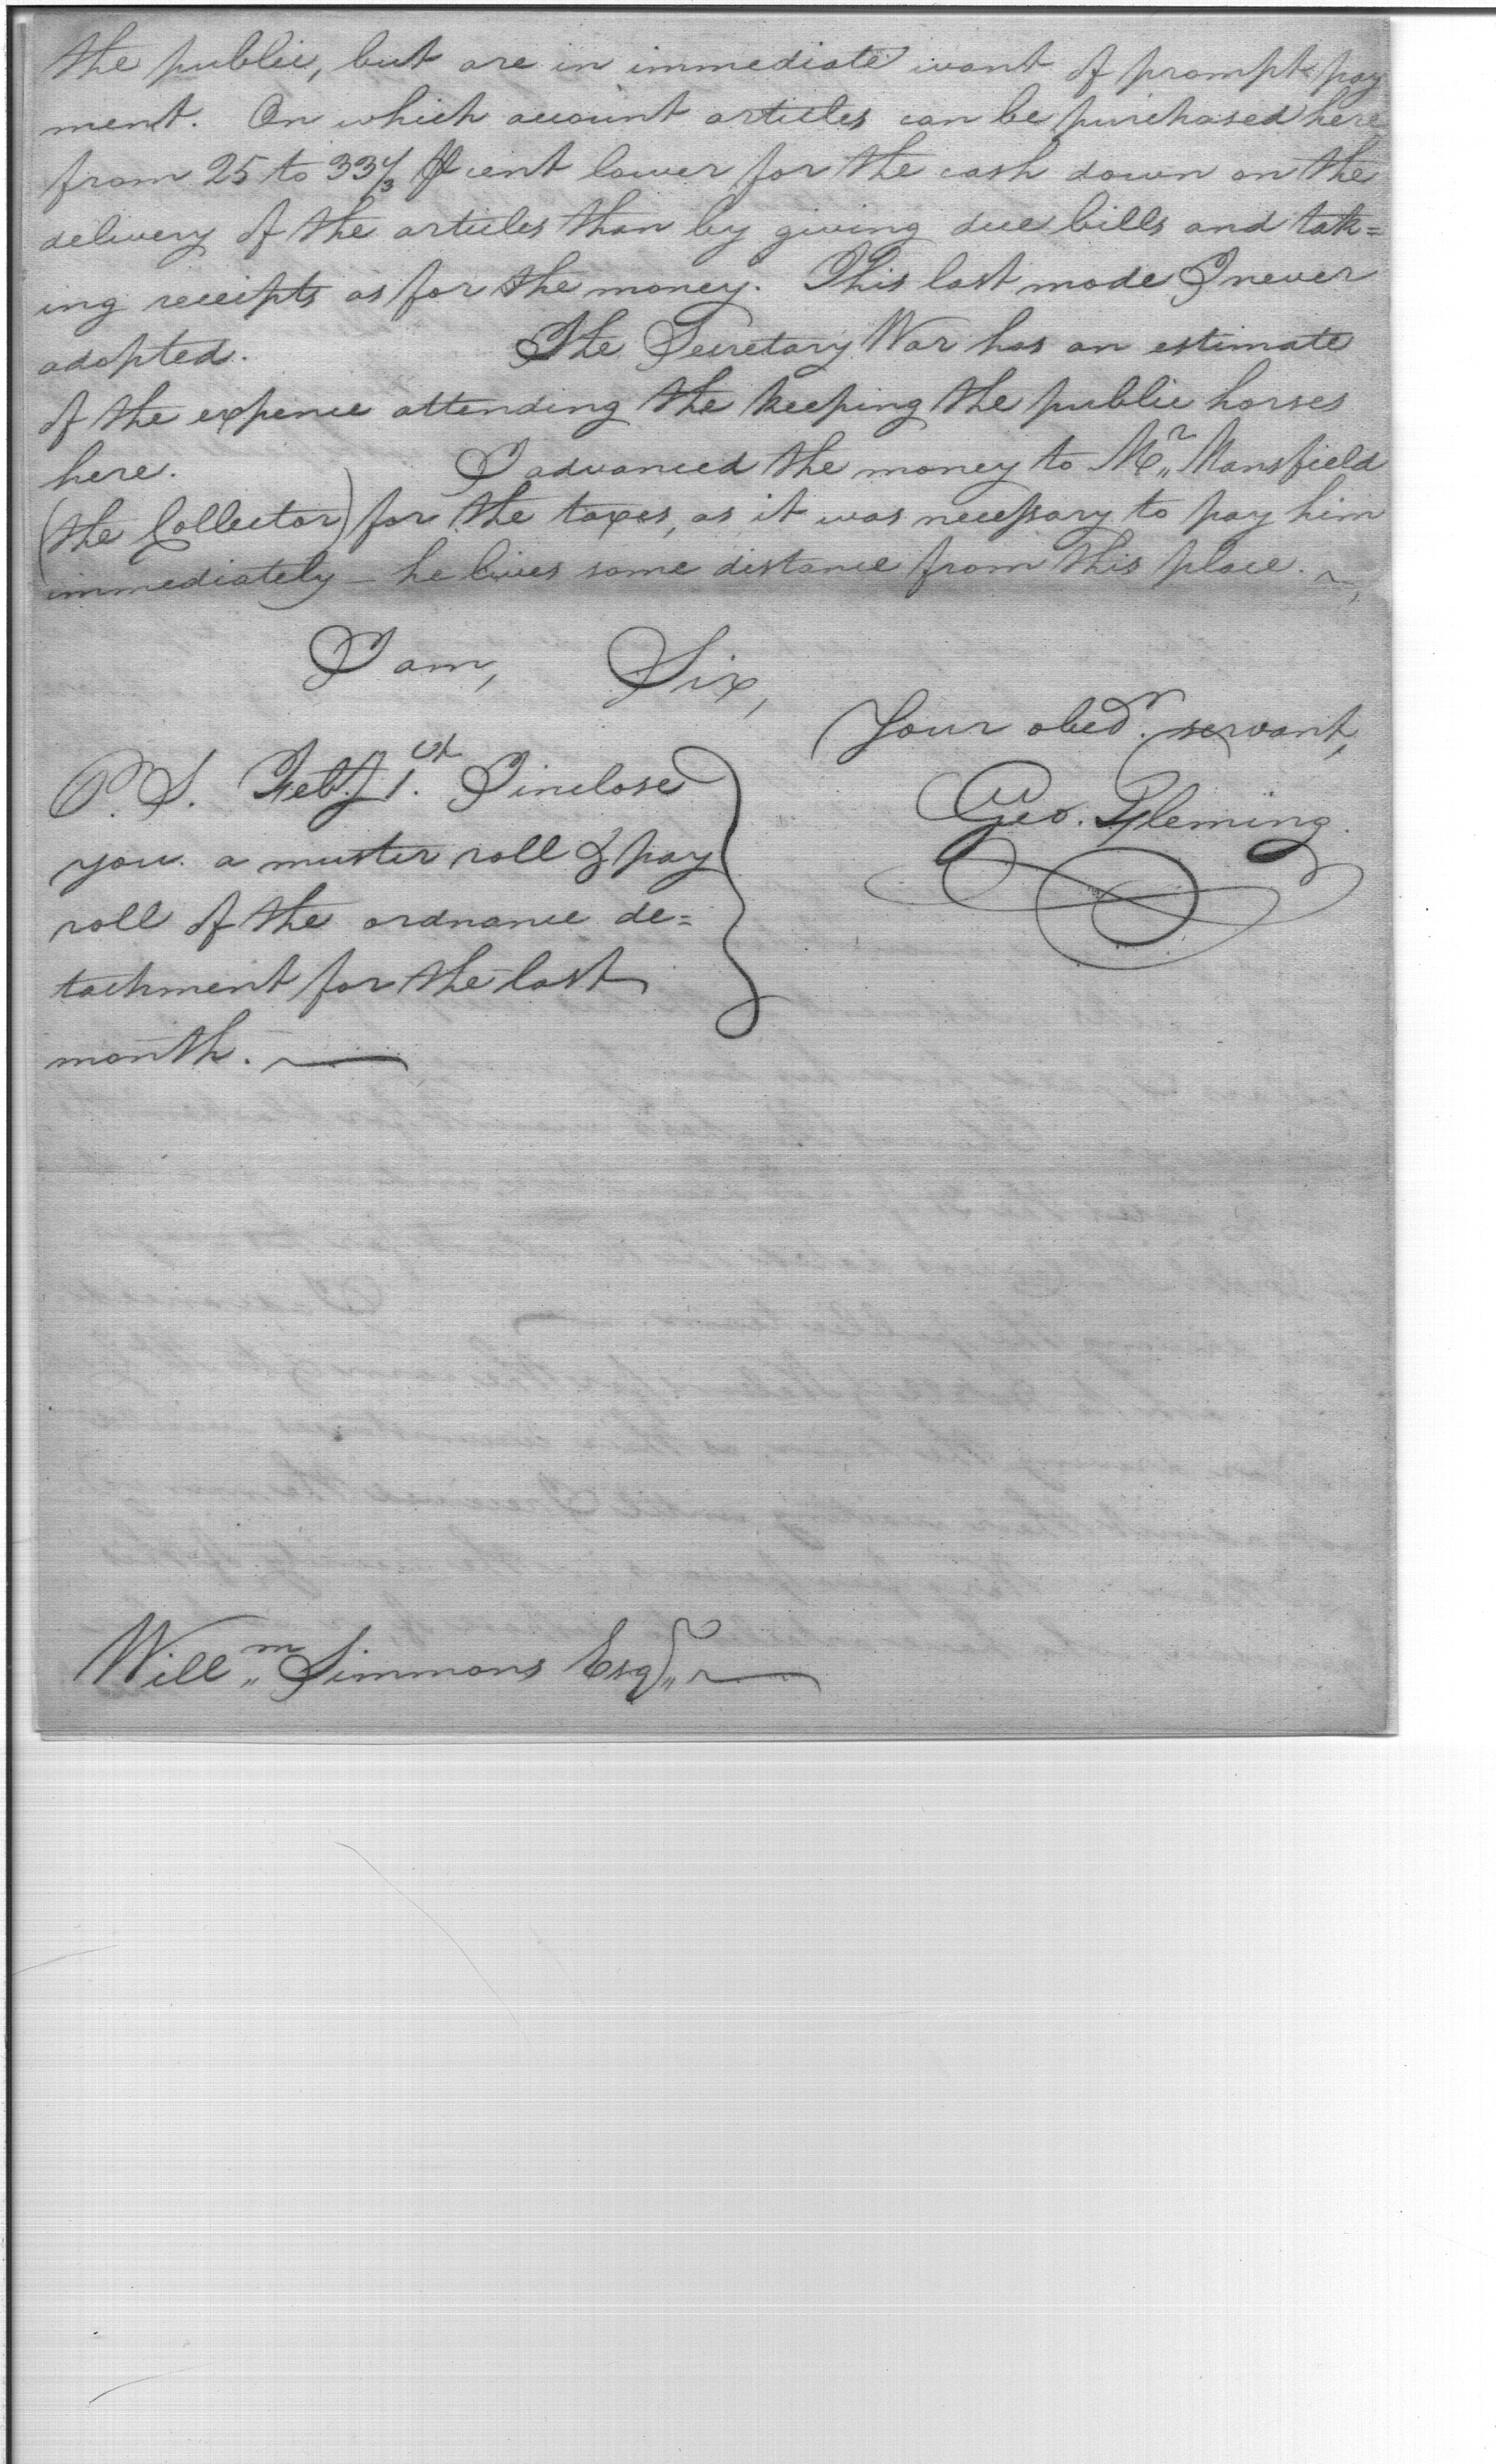 the public, but are in immediate want of prompt pay
ment. On which account articles can be purchased here
from 25 to 33 1/3 ⅌ cent lower for the cash down on the
delivery of the articles than by giving due bills and tak=
ing receipts as for the money. This last mode I never
adopted. The Secretary War has an estimate
of the expence attending the keeping the public horses
here. I advanced the money to Mr. Mansfield
(the Collector) for the taxes, as it was necessary to pay him
immediately — he lives some distance from this place. ~
I am, Sir,
Your obedr. servant,
Geo. Fleming.
P.S. Feby. 1st. I inclose
you a muster roll & pay
roll of the ordnance de=
tachment for the last
month. —
Willm. Simmons Esqr. —